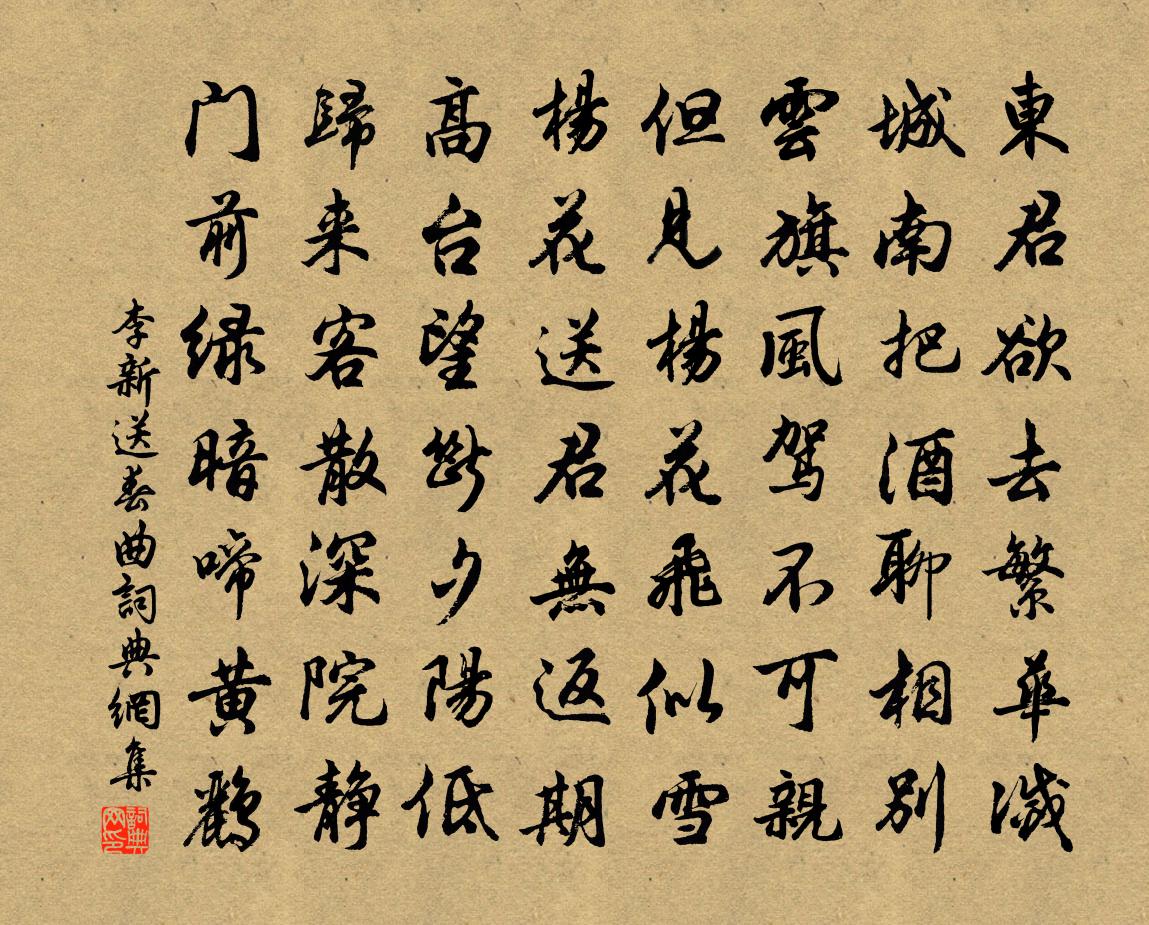 東君欲去繁華滅
城南把酒聊相別
雲旗風駕不可親
但見楊花飛似雪
楊花送君無返期
高台望斷夕陽低
歸来客散深院静
门前緑暗啼黄鸝
李新送春曲詞典網集
詞典网印